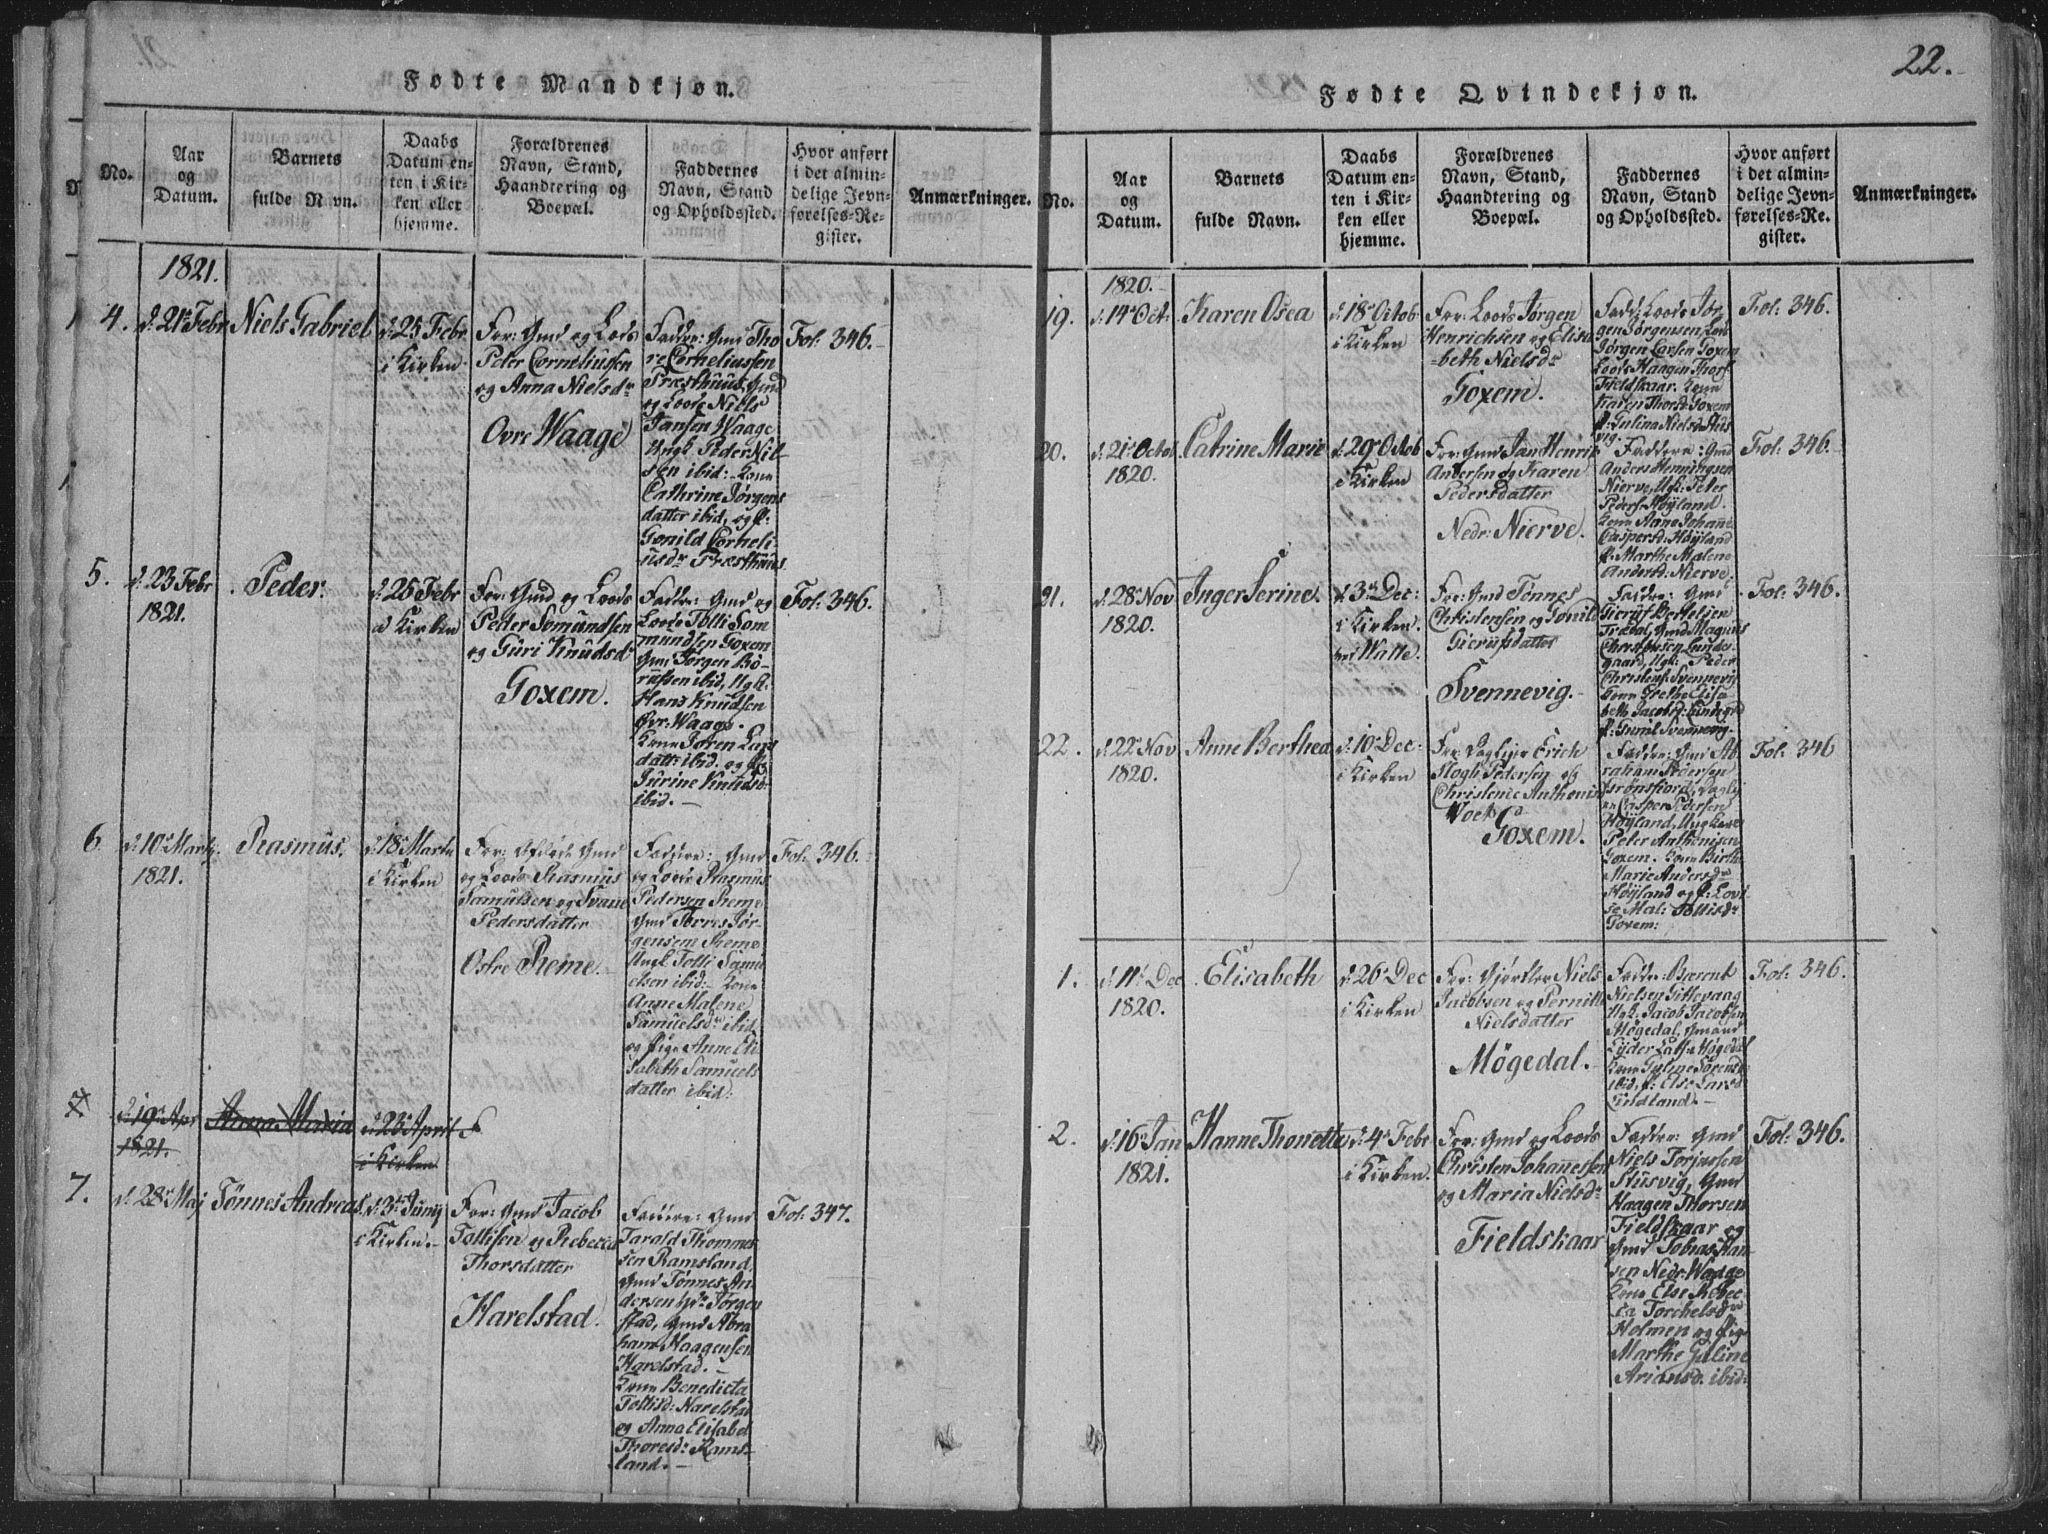 22.
Fødte Mandkjøn.
No.
Aar
og
Datum.
Barnets
fulde Navn.
Daabs
Datum en-
ten i Kir-
ken eller
hjemme.
Forældrenes
Navn, Stand,
Haandtering og
Boepæl.
Faddernes
Navn, Stand
og Opholdssted.
Hvor anført
i det almin-
delige Jevn-
førelses-Re-
gister.
Anmærkninger.
1821.
4.
d. 21 Febr
Niels Gabriel
d. 25 Febr
i Kirken
For: Gmd og Lods
Peter Corneliussen
og Anna Nielsdr
Ovre Waage
Faddre: Gmd Tho
re Corneliussen
Præsthuus, Gmd
og Lods Niels
Jansen Waage
Ungk. Peder Nil-
sen ibid: Kone
Cathrine Jørgens
datter ibid, og P:
Gonild Corneli-
usdr Præsthuus
Fol: 346.
5.
d. 23 Febr
1821.
Peder.
d. 25 Febr
i Kirken
For: Gmd og Lods
Peder Somundsen
og Guri Knudsd
Goxem.
Faddre: Gmd og
Lods Tolli Som
mundsen Goxem
Gmd Jørgen Bo-
rufsen ibid, Ugk.
Hans Knudsen
Øvr: Waage.
Kone Joren Lars
datt: ibid. og P
Jurine Knudsd
ibid.
Fol: 346.
6
d. 10 Marty
1821.
Rasmus.
d. 18 Marts
i Kirken
For: Afdøde Gmd
og Lods Rasmus
Samuelsen og Svane
Pedersdatter
Ostre Reme.
Faddre: Gmd
og Lods Rasmus
Pedersen Reme
Gmd Torres Jør-
gensen Reme
Ungk Tolli Samu
elsen ibid: Kone
Anne Malene
Samuelsdr ibid
og Pige Anne Eli
sabeth Samuels
datter ibid:
Fol: 346.
7
d. 19 Apr
1821.
Anna Maria
d. 23 April
i Kirken
7.
d. 28 Maj
Tønnes Andreas
d. 3 Juny
i Kirken.
For: Gmd Jacob
Tollisen og Rebecca
Thorsdatter
Harelstad.
Faddre: Gmd
Tarald Thommes
sen Ramsland,
Gmd Tønnes An
dersen Jørgen
stad, Gmd Abra
ham Haagensen
Harelstad.
Kone Benedicta
Tollisd: Harelstad
og Anna Elisabet
Thoresd: Rams-
land.
Fol: 347.
Fødte Qvindekjøn.
No.
Aar
og
Datum.
Barnets
fulde Navn.
Daabs
Datum en-
ten i Kir-
ken eller
hjemme.
Forældrenes
Navn, Stand,
Haandtering og
Boepæl.
Faddernes
Navn, Stand
og Opholdssted.
Hvor anført
i det almin-
delige Jevn-
førelses-Re-
gister.
Anmærkninger.
1820.
19.
d. 14 Oct.
Karen Osea
d. 18 Octob
i Kirken
For: Lods Jørgen
Henrichsen og Elisa
beth Nielsdr
Goxem.
Fadd: Lods Jør
gen Jørgensen Lods
Jørgen Larsen Goxem
Lods Haagen Thors
Fieldskaar. Kone
Karen Thorsd: Goxem
P: Gulina Nielsd Stus
vig.
Fol: 346.
20.
d. 21 Octob
1820.
Catrine Marie
d. 29 Octob
i Kirken
For: Gmd Jan Henrik
Andersen og Karen
Pedersdatter
Nedr: Nierve.
Faddere: Gmd
Anders Henningsen
Nierve, Ugk: Peter
Peders Höyland.
Kone Anne Johane
Caspersd: Höyland
P: Marthe Malene
Andersd: Nierve.
Fol: 346.
21.
d. 28 Nov
1820.
Inger Serine.
d. 3 Dec:
i Kirken.
For: Gmd Tønnes
Christensen og Gonild
Gierufsdatter
Svennevig.
Faddre: Gmd
Gieruf Bertelsen
Trædal, Gmd Magnus
Christensen Lunde-
gaard, Ugk: Peder
Christens: Svennevig
Kone Grethe Elisa
beth Jacobsd: Lundegrd
P: Guril Svennevig
Fol: 346.
22.
d. 22 Nov
1820.
Anne Berthea
d. 10 Dec:
i Kirken
Christense Anthonis
Goxem.
Faddre: Gmd Ab-
raham Pedersen
en Casper Pedersen
Höyland, Ungkarl
Peter Anthonisen
Goxem. Kone Birthe
Marie Andersdr
Höyland og P: Lovi
se Mal: Tollisdr
Goxem:
Fol: 346
1.
d. 11 Dec
1820.
Elisabeth
d. 26 Dec
i Kirken
For: Gjørtler Niels
Jacobsen og Pernille
Nielsdatter
Mögedal.
Faddr: Barent
Nielsen Gittevaag
Ugk. Jacob Jacobsen
Mögedal, Gmand
Eyder Lars: Mögedal
Kone Guline Sörensd
ibid, P: Else Larsd
Lindland.
Fol: 346.
2.
d. 16 Jan
1821.
Hanne Thonette
d. 4 Febr
i Kirken.
For: Gmd og Lods
Christen Johannessen
og Maria Nielsd:
Fieldskaar
Faddre: Gmd
Niels Torjussen
Stusvig, Gmd
Haagen Thorsen
Fieldskaar og
Gmd Tobias Han-
sen Nedr: Waage
Kone Else Rebec
ca Torchelsdr
Holmen og Pige
Marthe Guline
Ariansd. ibid:
Fol: 346.